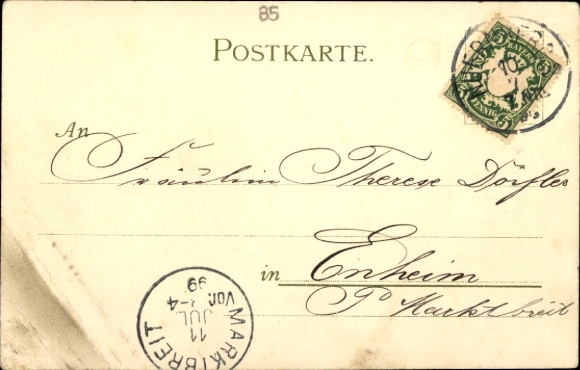 85
POSTKARTE.
BAYERN
5 5
PFENNIG
10
7
An
Fräulein Therese Dörfler
in Enheim
Po Marktbreit
MARKTBREIT
11
JUL
VOR. 3-4
99